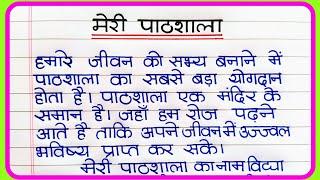 मेरी पाठशाला
हमारे जीवन को सभ्य बनाने में
पाठशाला का सबसे बड़ा योगदान
होता है। पाठशाला एक मंदिर के
समान है। जहाँ हम रोज पढ़ने
आते है ताकि अपने जीवन में उज्ज्वल
भविष्य प्राप्त कर सके।
मेरी पाठशाला का नाम विद्या